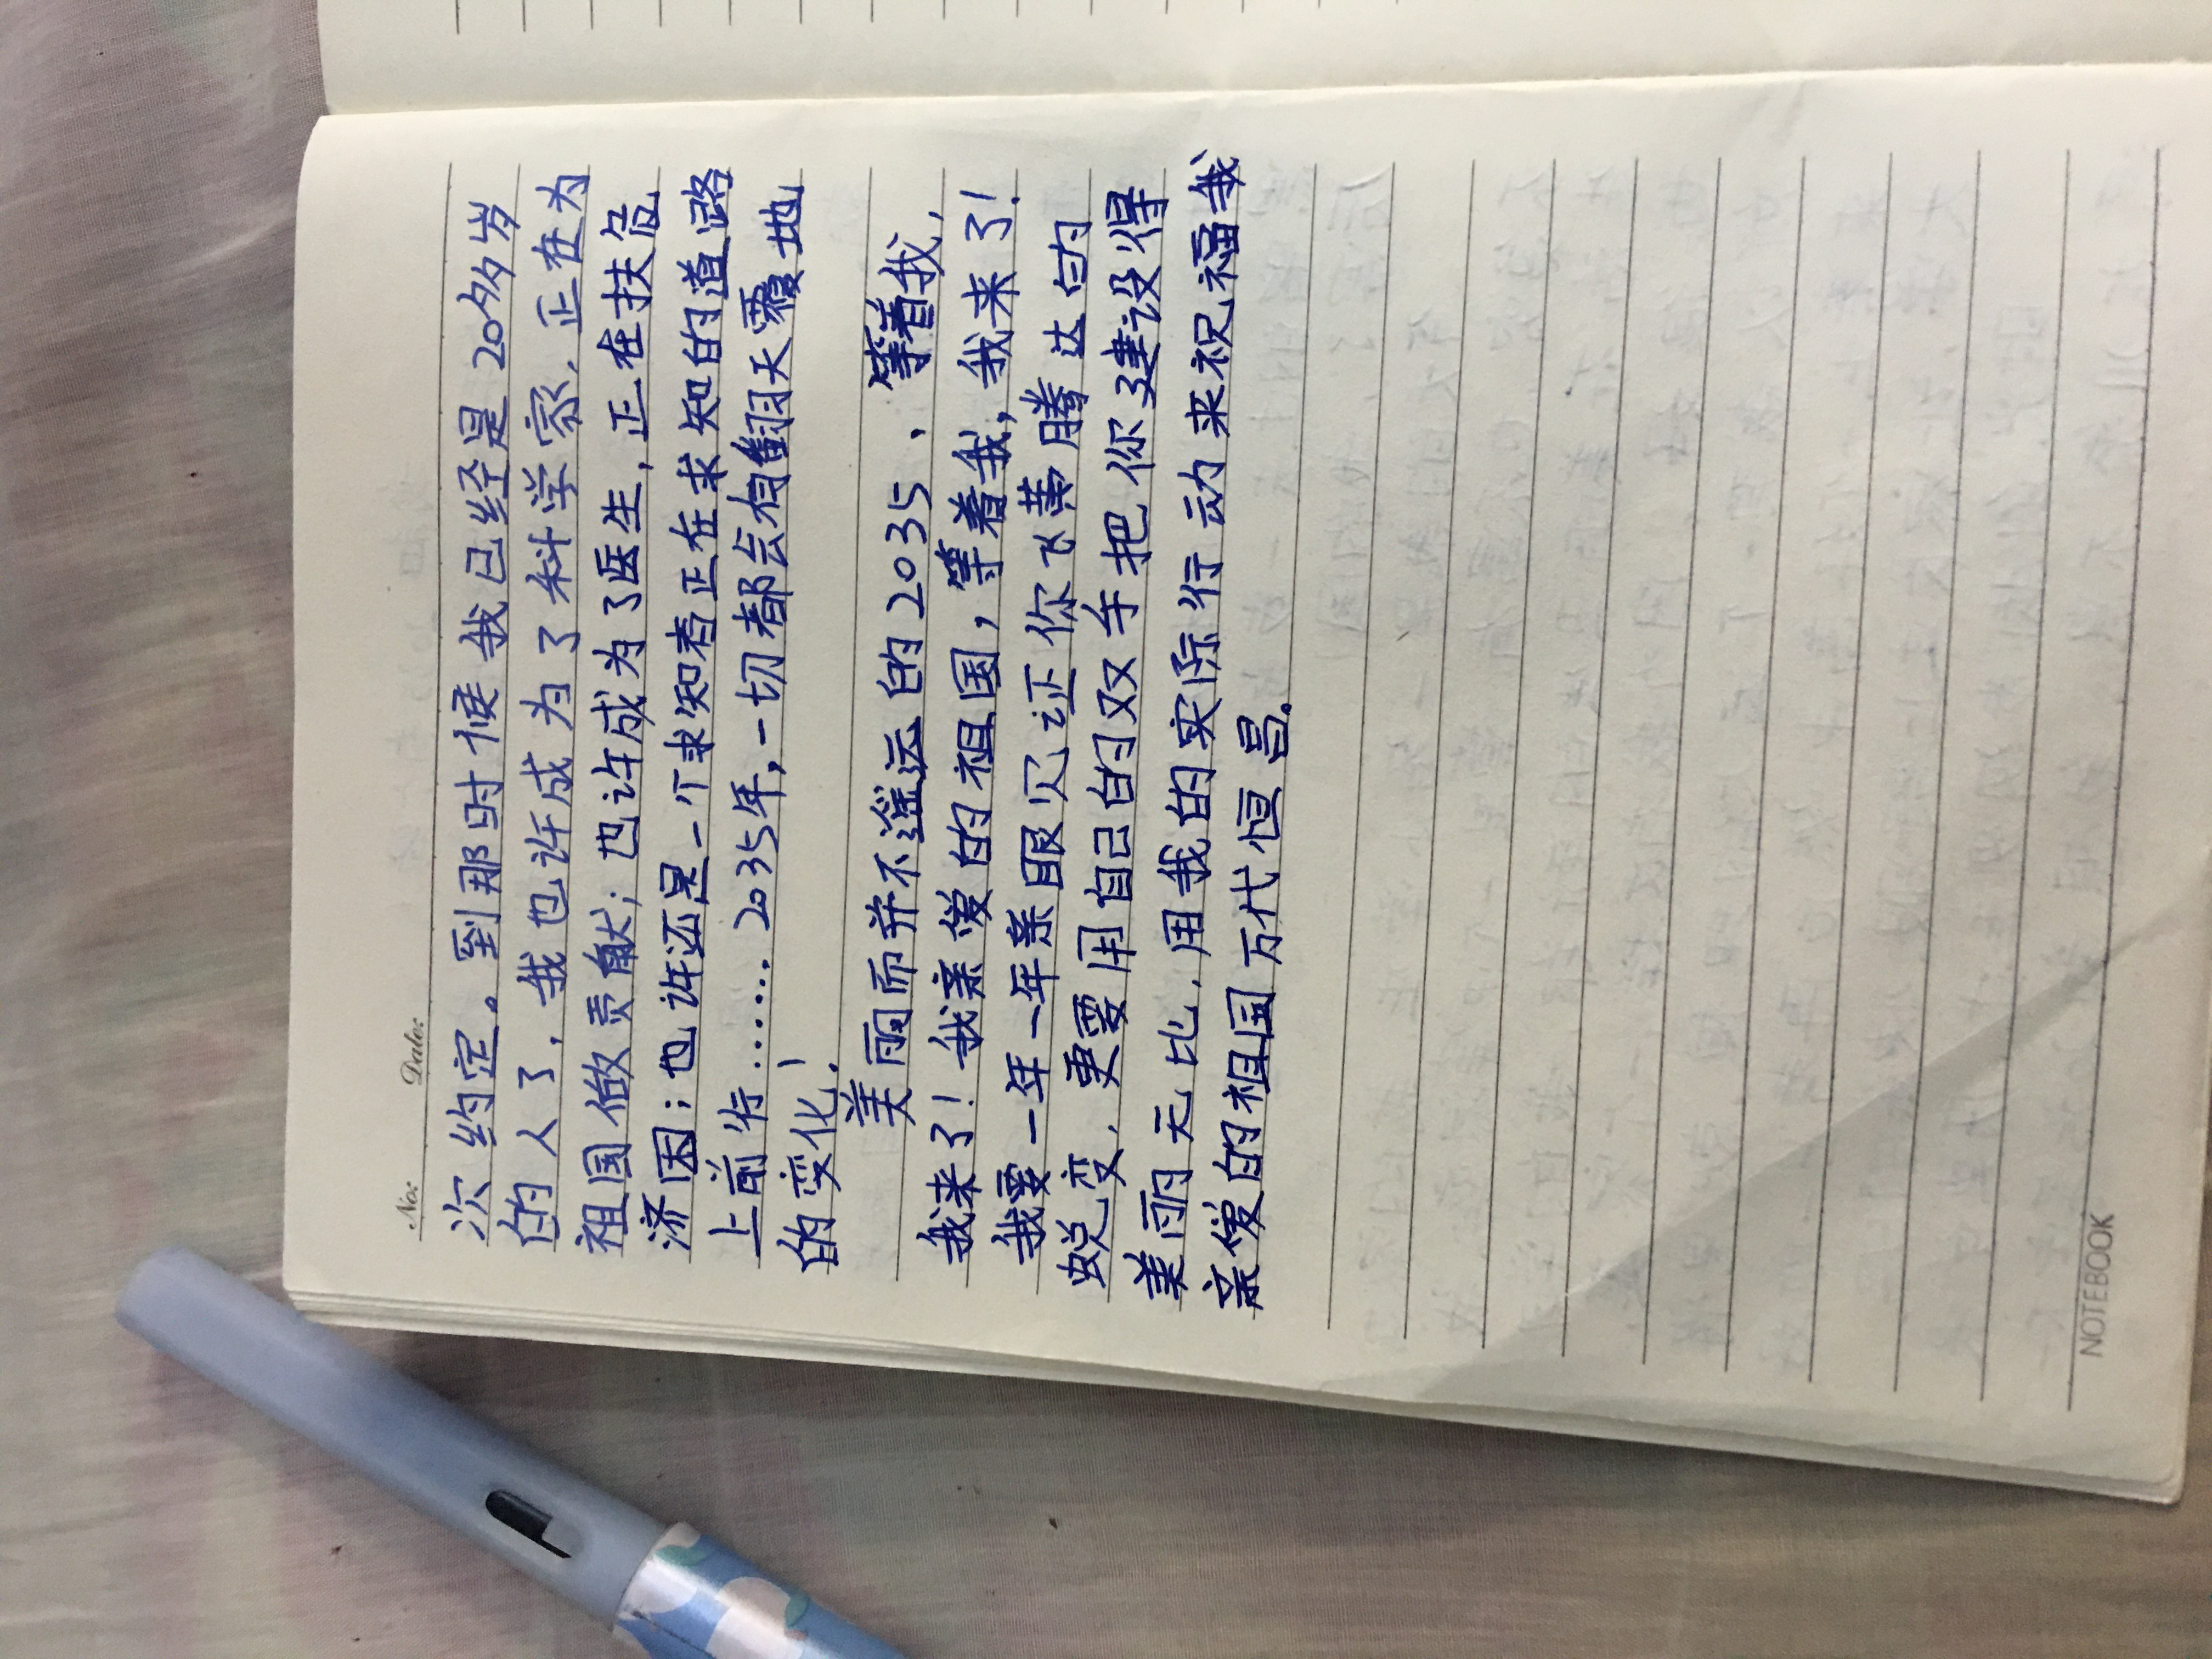 No:
Date:
次约定。到那时候我已经是20多岁
的人了，我也许成为了科学家，正在为
祖国做贡献；也许成为了医生，正在扶危
济困；也许还是一个求知着正在求知的道路
上前行……2035年，一切都会有翻天覆地
的变化！
美丽而并不遥远的2035、等着我，
我来了！我亲爱的祖国，等着我，我来了！
我要一年一年亲眼见证你飞黄腾达的
蜕变，更要用自己的双手把你建设得
美丽无比，用我的实际行动来祝福我
亲爱的祖国万代恒昌。
NOTEBOOK